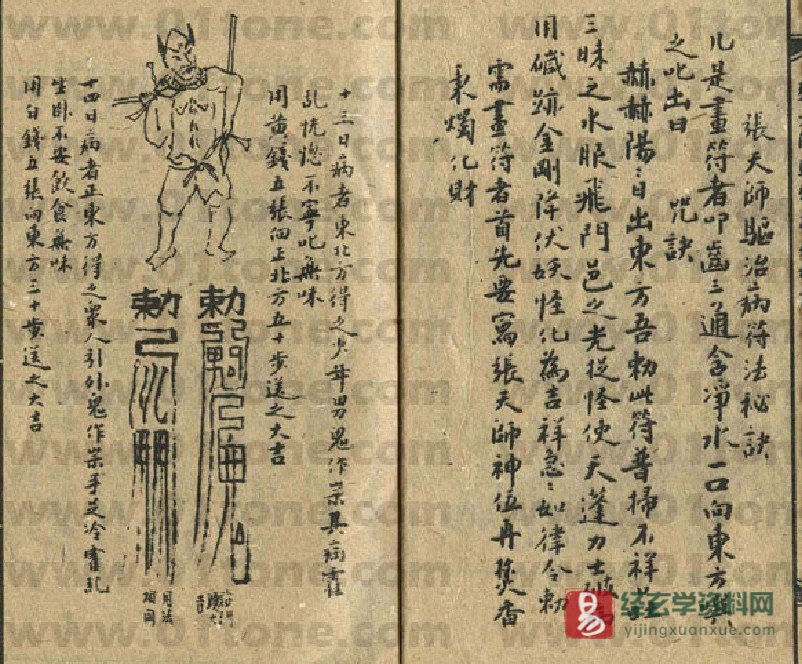 張天師驅治病符法秘訣
凡是畫符者叩齒三通含淨水一口向東方
之叱出曰 咒訣
赫赫陽々日出東方吾勅此符普掃不祥
三昧之水眼飛門邑之光捉怪使天蓬力士
用碱跡金剛降伏妖怪化為吉祥急々如律令勅
需畫符者首先要寫張天師神位再焚香
秉燭化財
十三日病者東北方得之少年男鬼作祟其病
乱恍惚不寧叱無味
用黃錢五張向上北方五十步送之大吉
勅
勅
用法
相同
十四日病者正東方得之眾人引外鬼作祟手足冷
生卧不安飲食無味
用白錢五張向東方三十步送之大吉
www.01tone.com
易
经玄学资料网
yijingxuanxue.com